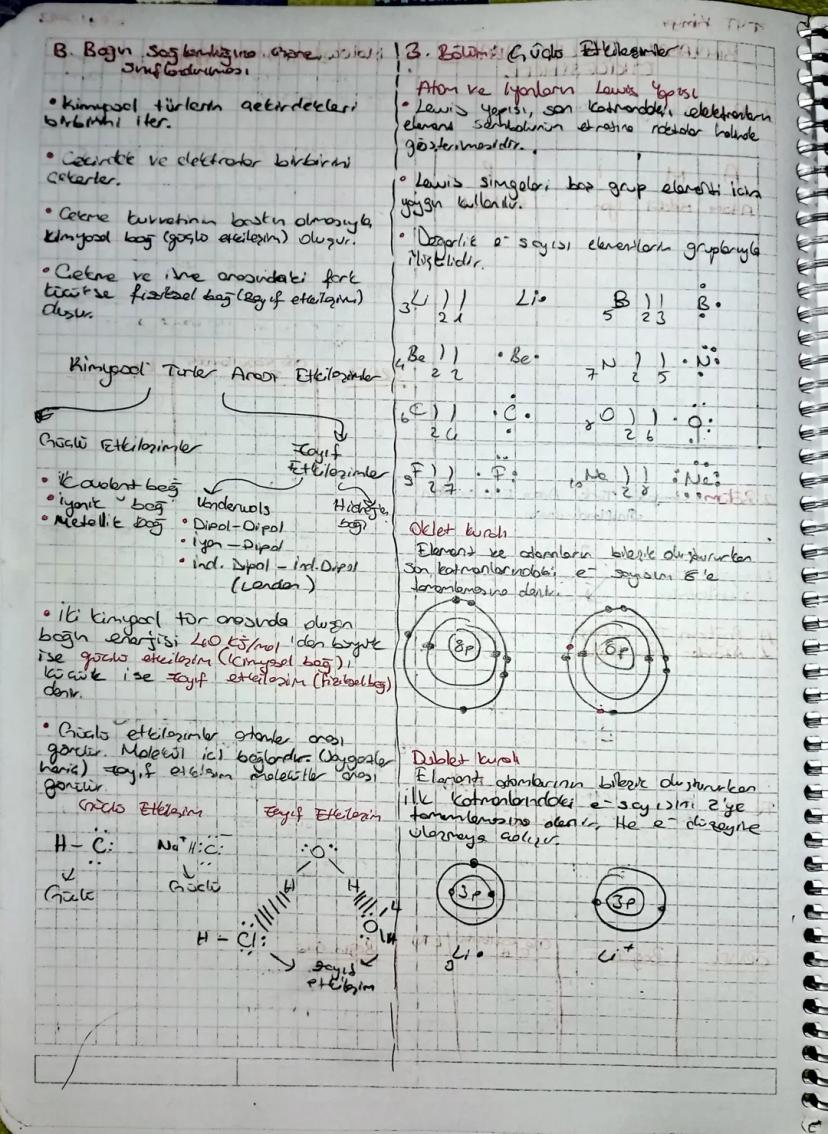 B. Bağın Sağlamlığına Göre
Sınıflandırılması
• Kimyasal türlerin çekirdekleri
birbirini iter.
• Çekirdek ve elektronlar birbirini
çekerler.
• Çekme kuvvetinin baskın olmasıyla
kimyasal bağ (güçlü etkileşim) oluşur.
• Çekme ve itme arasındaki fark
küçükse fiziksel bağ (zayıf etkileşim)
oluşur.
Kimyasal Türler Arası Etkileşimler
Güçlü Etkileşimler
• Kovalent bağ
• İyonik bağ
• Metalik bağ
Zayıf
Etkileşimler
Vanderwals
• Dipol-Dipol
• İyon-Dipol
• ind. Dipol - ind. Dipol
(London)
Hidrojen
bağı
• İki kimyasal tür arasında oluşan
bağın enerjisi 40 kj/mol 'den büyük
ise güçlü etkileşim (kimyasal bağ),
küçük ise zayıf etkileşim (fiziksel bağ)
denir.
• Güçlü etkileşimler atomlar arası
görülür. Molekül içi bağlardır. (Soygazlar
hariç) zayıf etkileşim moleküller arası
görülür.
Güçlü Etkileşim Zayıf Etkileşim
H - C:
Güçlü
Na⁺ H:C:
Güçlü
O
H H
H - Cl:
O
H
zayıf
etkileşim
3. Bölüm: Güçlü Etkileşimler
Atom ve İyonların Lewis Yapısı
• Lewis yapısı, son katmandaki elektronların
element sembolünün etrafına noktalar halinde
gösterilmesidir.
• Lewis simgeleri baş grup elementi için
yaygın kullanılır.
• Değerlik e- sayısı elementlerin gruplarıyla
ilişkilidir.
3Li ) ) 2 1 Li• 5B ) ) 2 3 B
4Be ) ) 2 2 •Be• 7N ) ) 2 5 N
6C ) ) 2 4 C 8O ) ) 2 6 O
9F ) ) 2 7 F 10Ne ) ) 2 8 Ne
Oktet kuralı
Element ve atomların bileşik oluştururken
son katmanlarındaki e- sayısını 8'e
tamamlamasına denir.
8p 8p
Dublet kuralı
Element atomlarının bileşik oluştururken
ilk katmanlarındaki e- sayısını 2'ye
tamamlamasına denir. He e- düzeyine
ulaşmaya çalışır.
3p 3p
3Li• Li⁺